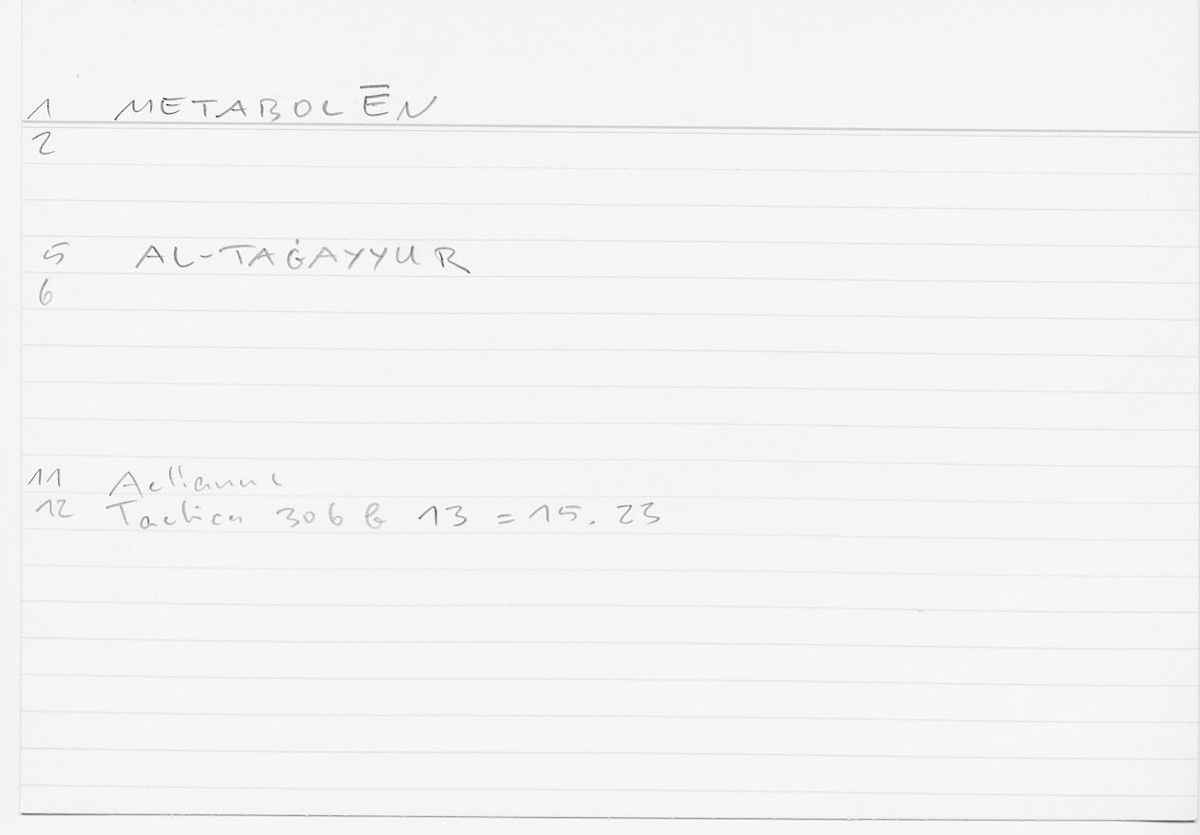 1 METABOLĒN
2
5 AL-TAĠAYYUR
6
11 Aelianus
12 Tactica 306 b 13 = 15. 23